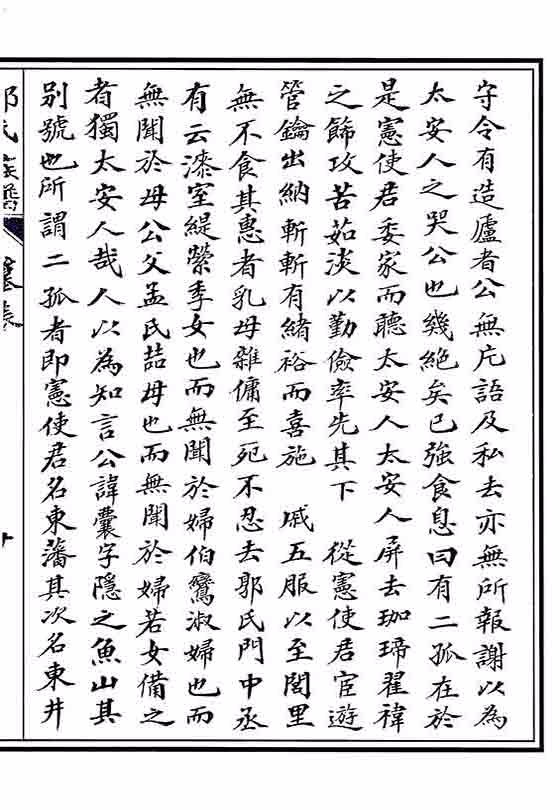 守令有造廬者公無片語及私去亦無所報謝以為
太安人之哭公也幾絕矣已強食息曰有二孤在於
是憲使君委家而聽太安人太安人屏去珈瑱翟褘
之飾攻苦茹淡以勤儉率先其下 從憲使君宦遊
管鑰出納斬斬有緒裕而喜施 戚五服以至閭里
無不食其惠者乳母雜傭至死不忍去郭氏門中丞
有云漆室緹縈季女也而無聞於婦伯鸞淑婦也而
無聞於母公父孟氏喆母也而無聞於婦若女備之
者獨太安人哉人以為知言公諱囊字隱之魚山其
別號也所謂二孤者即憲使君名東藩其次名東井
郭氏族譜 墓表
十